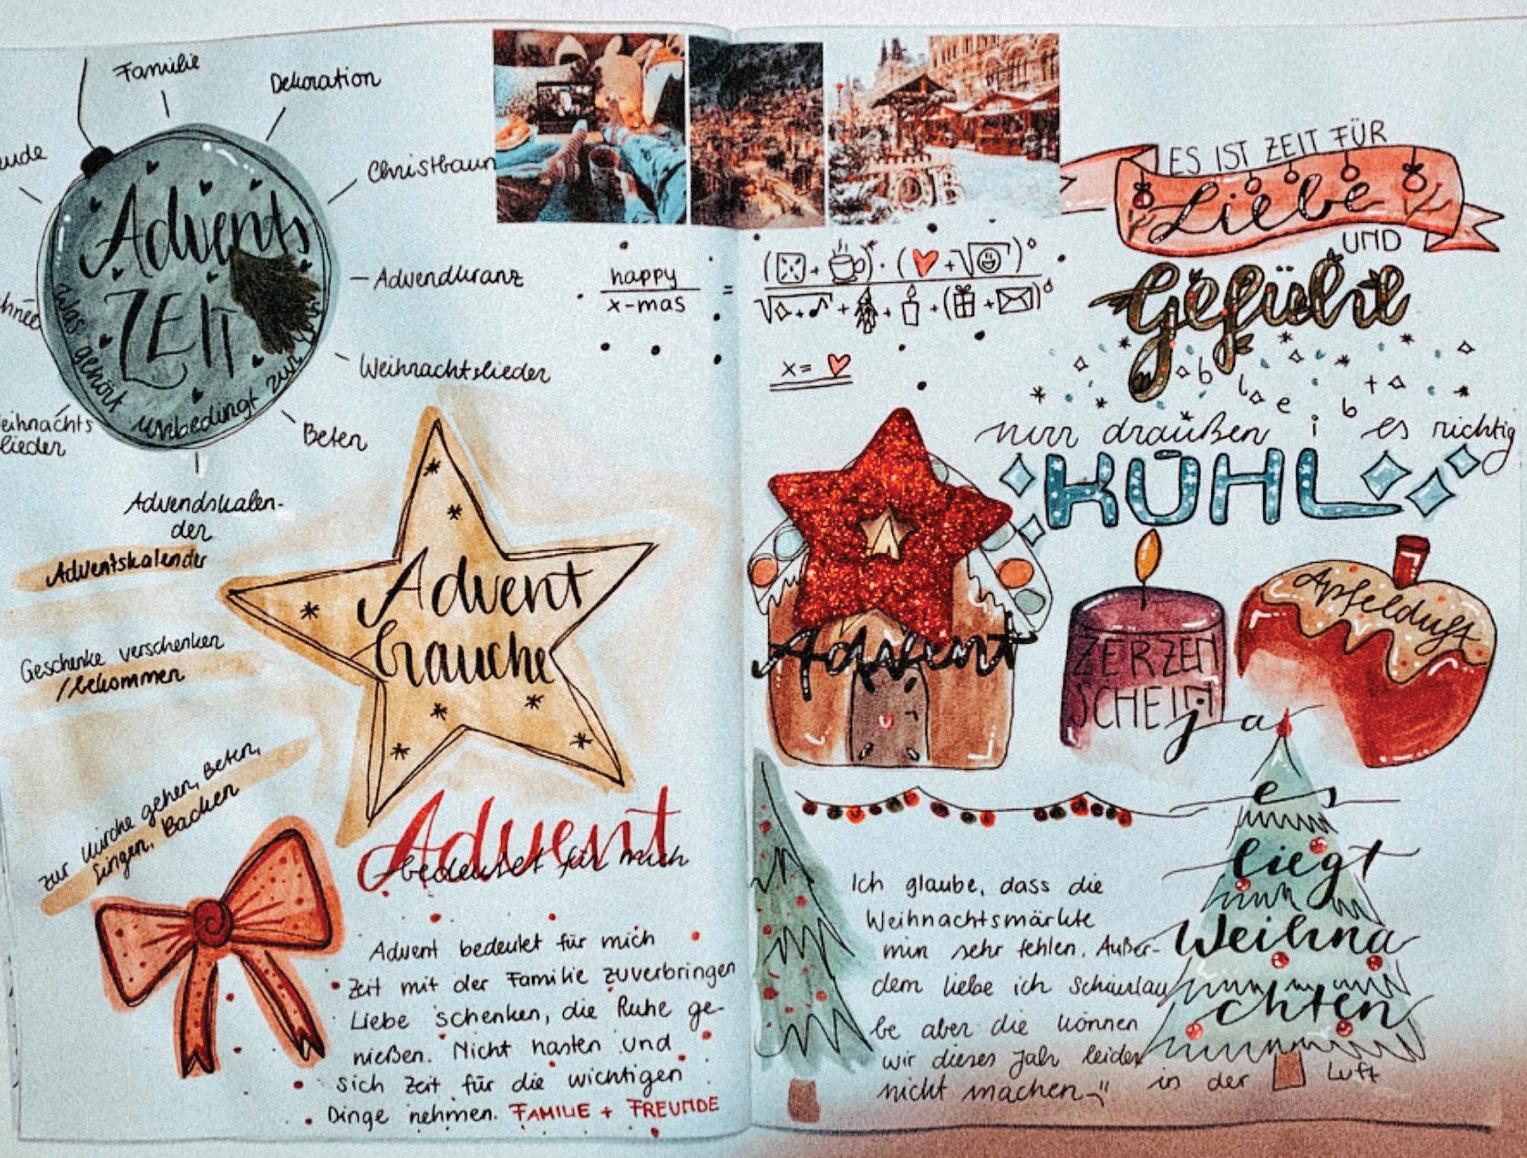 Familie
Dekoration
Christbaum
Advendkranz
Weihnachtslieder
Beten
Advendskalen-
der
eihnachts
lieder
hnee
eude
Advents
ZEIT
Was gehört unbedingt zur
Adventskalender
Geschenke verschenken
/bekommen
zur Kirche gehen, Beten,
Singen, Backen
Advent
bräuche
Advent
bedeutet für mich
Advent bedeutet für mich
Zeit mit der Familie zuverbringen
Liebe schenken, die Ruhe ge-
nießen. Nicht hasten und
sich Zeit für die wichtigen
Dinge nehmen. FAMILIE + FREUNDE
happy
x-mas
=
x=
ES IST ZEIT FÜR
Liebe
UND
Gefühle
nur draußen bleibt es richtig
KÜHL
Advent
KERZEN
SCHEIN
Apfelduft
ja
es
liegt
Weihna
chten
in der Luft
Ich glaube, dass die
Weihnachtsmärkte
mir sehr fehlen. Außer-
dem liebe ich Schiurlau
be aber die können
wir dieses Jahr leider
nicht machen